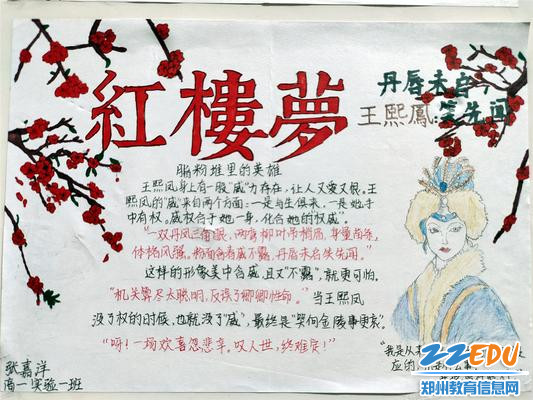 紅樓夢
丹唇未启
王熙鳳：笑先闻
脂粉堆里的英雄
王熙凤身上有一股“威”力存在，让人又爱又恨。王
熙凤的“威”来自两个方面：一是与生俱来，一是她手
中有权。威权合于她一身，化合她的权威”。
“一双丹凤三角眼，两弯柳叶吊梢眉，身量苗条，
体格风骚。粉面含春威不露，丹唇未启笑先闻。”
这样的形象美中含威，且又“不露”，就更可怕。
“机关算尽太聪明，反误了卿卿性命。”当王熙凤
没了权的时候，也就没了“威”，最终是“哭向金陵事更哀”。
“呀！一场欢喜忽悲辛。叹人世，终难定！”
张嘉洋
商一实验一班
“我是从来
应的
ZZEDU
郑州教育信息网